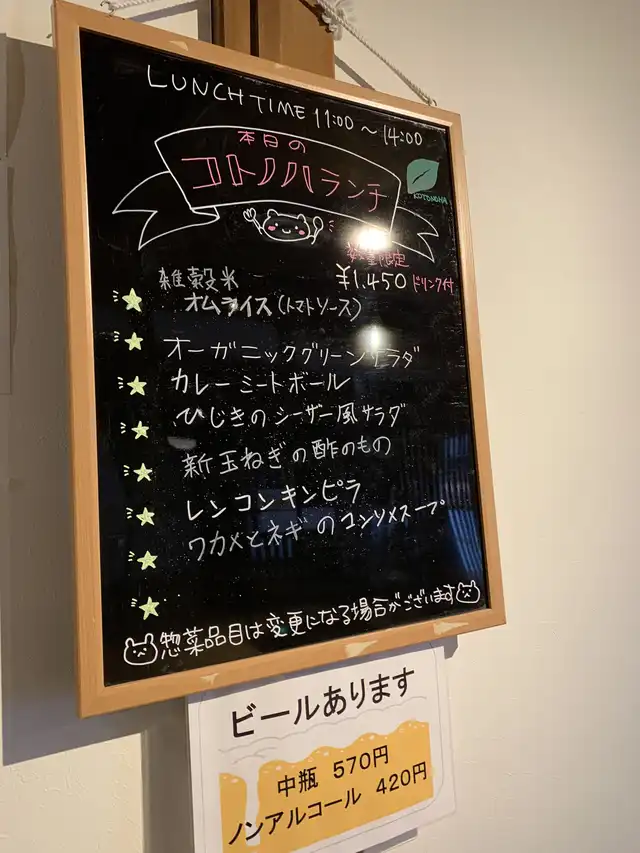 LUNCH TIME 11:00 〜 14:00
本日の
コトノハランチ
KOTONOHA
数量限定
雑穀米 ¥1.450 ドリンク付
オムライス(トマトソース)
オーガニックグリーンサラダ
カレーミートボール
ひじきのシーザー風サラダ
新玉ねぎの酢のもの
レンコンキンピラ
ワカメとネギのコンソメスープ
惣菜品目は変更になる場合がございます
ビールあります
中瓶 570円
ノンアルコール 420円